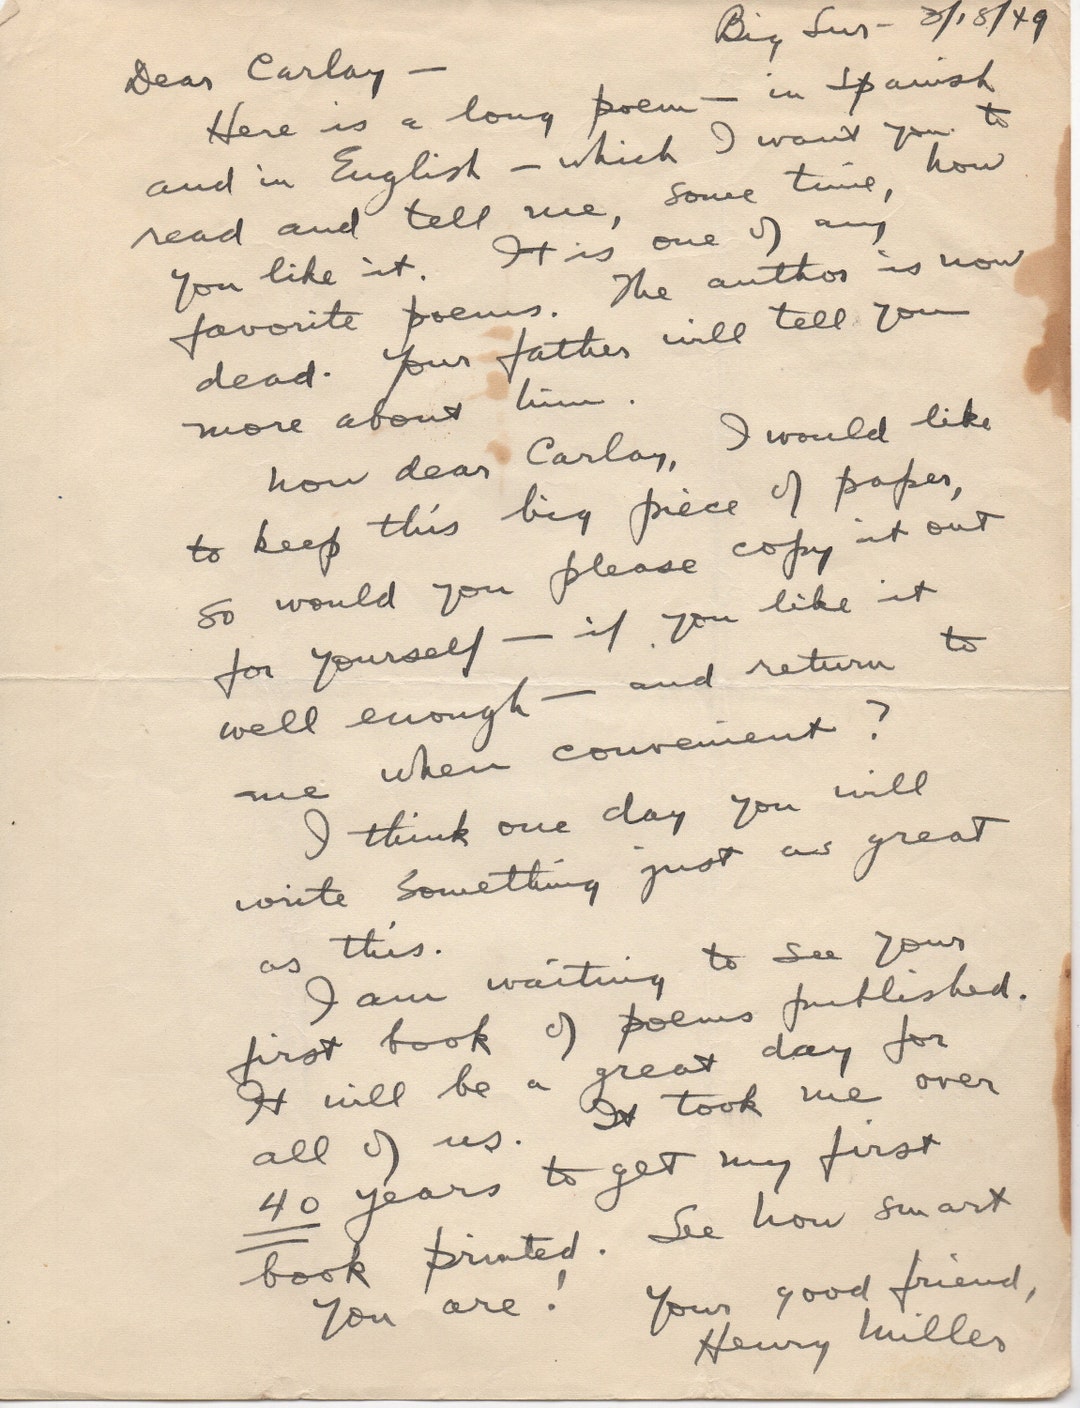 Big Sur - 3/18/49
Dear Carlay —
Here is a long poem — in Spanish
and in English — which I want you to
read and tell me, some time, how
you like it. It is one of my
favorite poems. The author is now
dead. Your father will tell you
more about him.
Now dear Carlay, I would like
to keep this big piece of paper,
so would you please copy it out
for yourself — if you like it
well enough — and return to
me when convenient?
I think one day you will
write something just as great
as this.
I am waiting to see your
first book of poems published.
It will be a great day for
all of us. It took me over
40 years to get my first
book printed. See how smart
you are! Your good friend,
Henry Miller